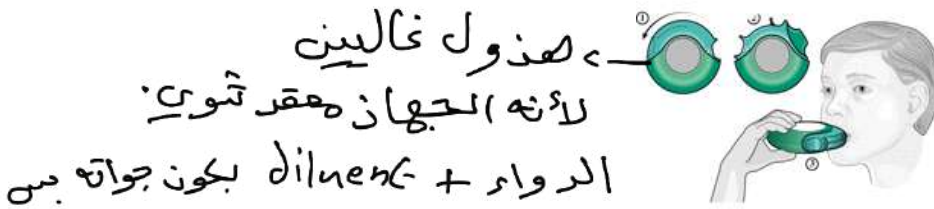 هذول غاليين
لأنه الجهاز معقد شوي.
الدواء + diluent بكون جواته بس
① ② ③